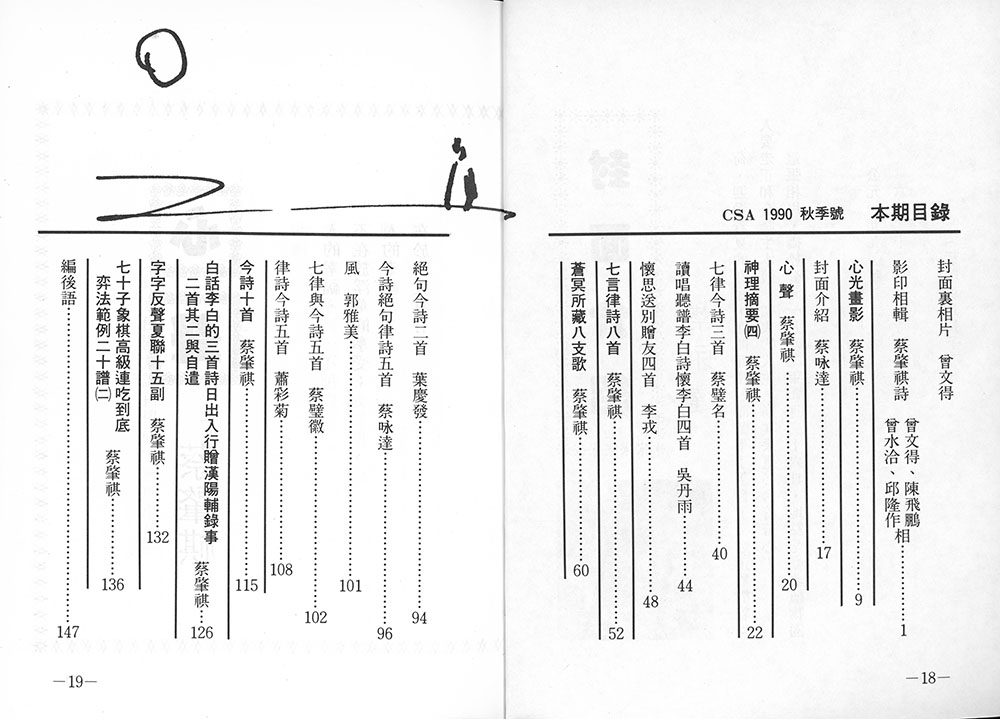 本期目錄 CSA 1990 秋季號
封面裏相片 曾文得
影印相輯 蔡肇祺詩 曾文得、陳飛鵬 曾水洽、邱隆作 相……1
心光畫影 蔡肇祺……9
封面介紹 蔡咏達……17
心聲 蔡肇祺……20
神理摘要㈣ 蔡肇祺……22
七律今詩三首 蔡璧名……40
讀唱聽譜李白詩懷李白四首 吳丹雨……44
懷思送別贈友四首 李戎……48
七言律詩八首 蔡肇祺……52
蒼冥所藏八支歌 蔡肇祺……60
—18—
絕句今詩二首 葉慶發……94
今詩絕句律詩五首 蔡咏達……96
風 郭雅美……101
七律與今詩五首 蔡璧徽……102
律詩今詩五首 蕭彩菊……108
今詩十首 蔡肇祺……115
白話李白的三首詩日出入行贈漢陽輔錄事
二首其二與自遣 蔡肇祺……126
字字反聲夏聯十五副 蔡肇祺……132
七十子象棋高級連吃到底
弈法範例二十譜㈡ 蔡肇祺……136
編後語……147
—19—